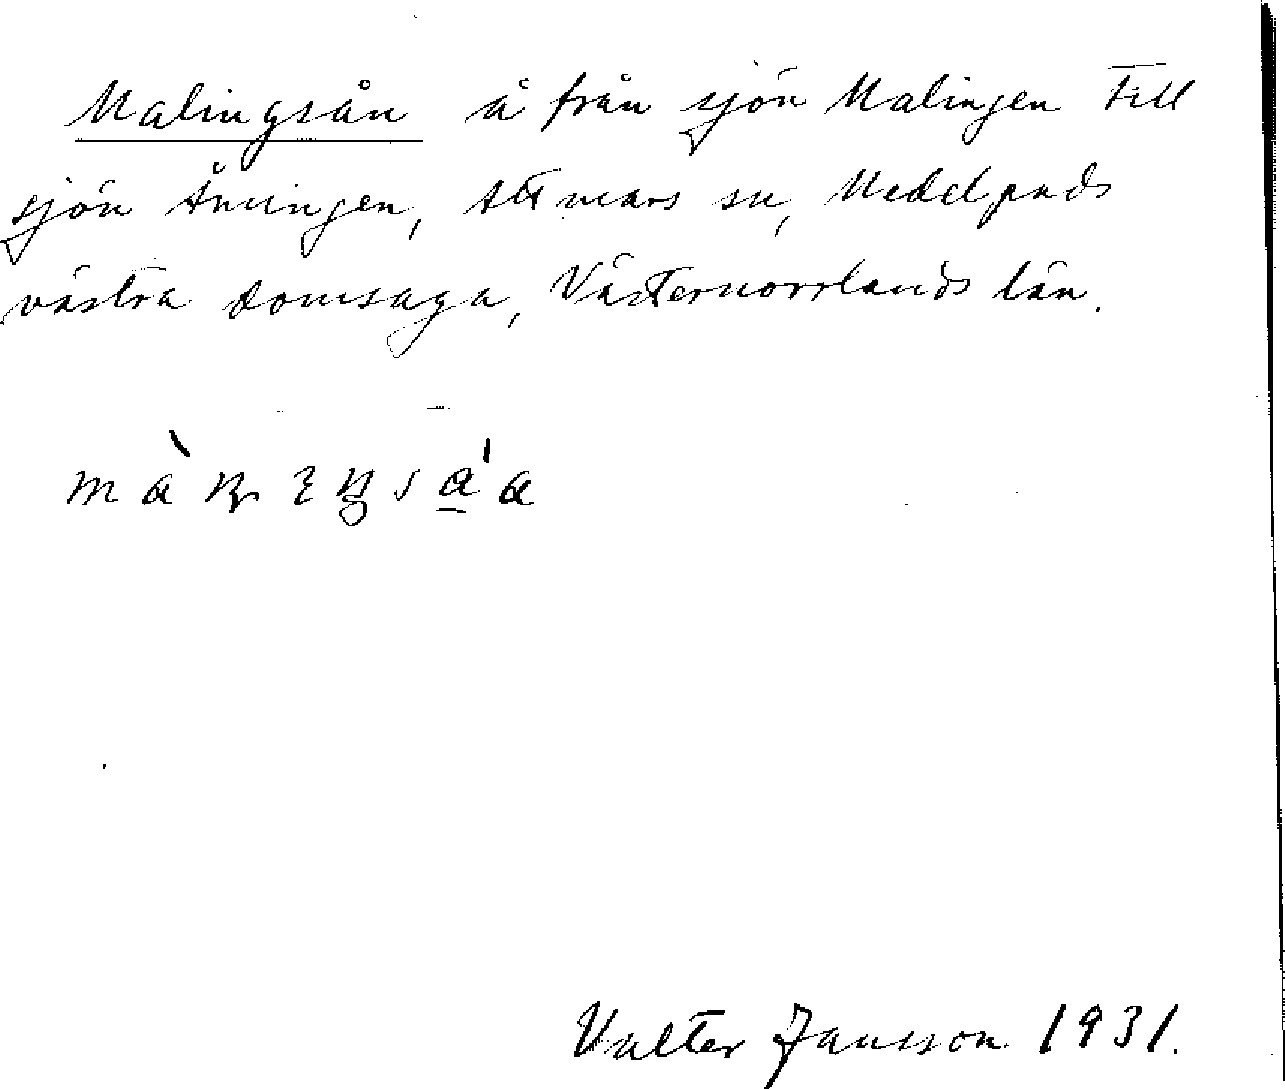 Malingsån å från sjön Malingen till
sjön Åmingen, Attmars sn, Medelpads
västra domsaga, Västernorrlands län.
Valter Jansson 1931.